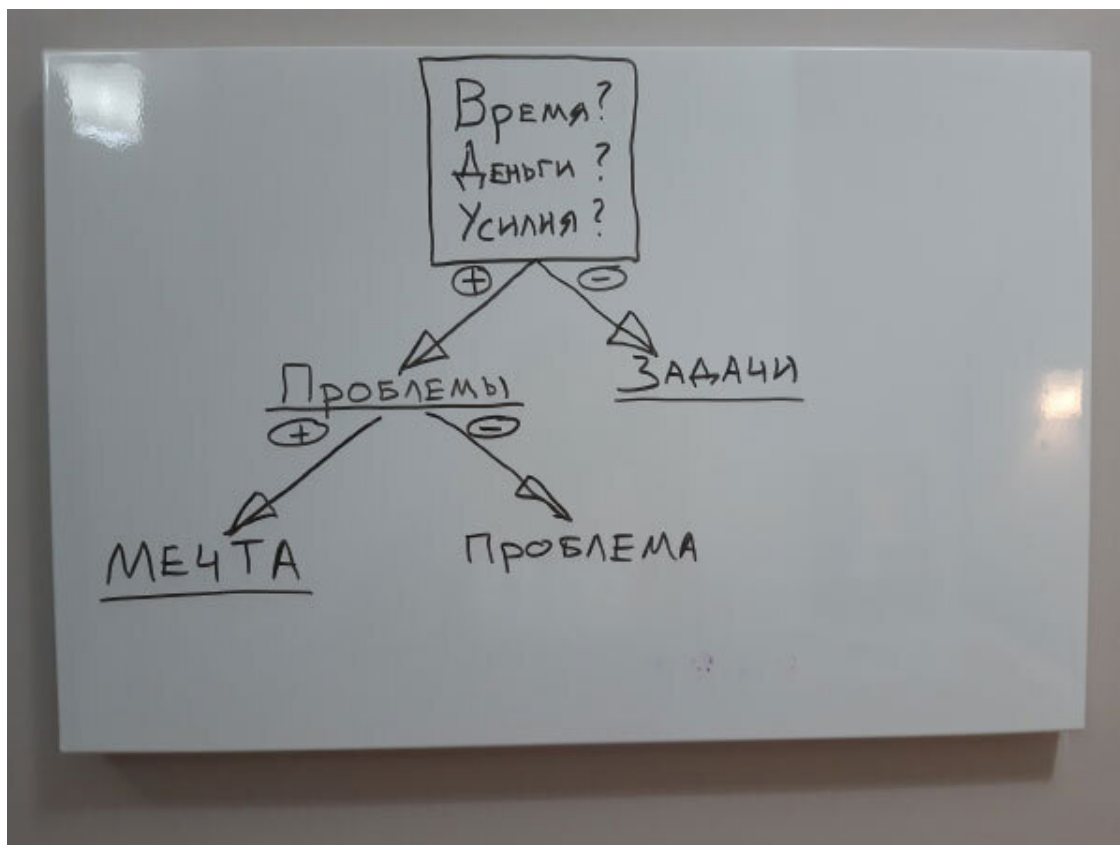 Время?
Деньги?
Усилия?
+ -
Проблемы
Задачи
+ -
Мечта
Проблема